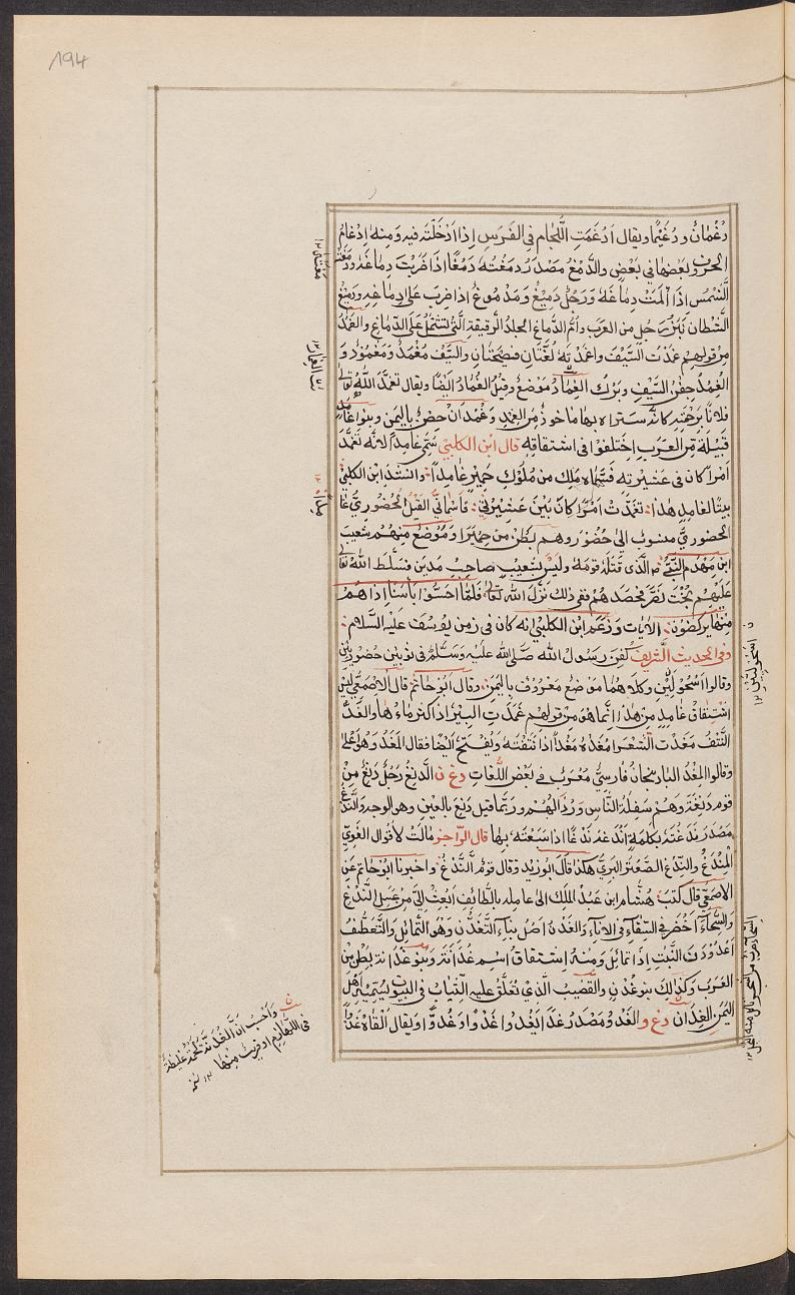 194
دُغمان ودُغَيْما ويقال ادغمت اللجام في الفرس اذا ادخلته فيه ومنه ادغام
الحروف بعضها في بعض والدَّمْغ مصدر دمغته دَمْغًا اذا ضربت دماغه ودمغته
الشمس اذا آلمت دماغه ورجل دَمِيغ ومَدْموغ اذا ضرب على دماغه ودميغ
الشيطان نَبْز رجل من العرب وام الدماغ الجلدة الرقيقة التي تشتمل على الدماغ والغمد
من قولهم غمدت السيف واغمدته لغتان فصيحتان والسيف مُغْمَد ومَغْمود و
الغِمد جفن السيف وبَرْك الغِماد موضع وقيل الغُماد ايضا ويقال تغمد الله تعالى
فلانا برحمته كانه ستره بها ماخوذ من الغمد وغُمْدان حصن باليمن وبنو غامد
قبيلة من العرب اختلفوا في اشتقاقه قال ابن الكلبي سمي غامدا لانه تغمد
امرا كان في عشيرته فسماه ملك من ملوك حمير غامدا وانشد ابن الكلبي
بيتا لغامد هذا تغمدت امرا كان بين عشيرتي فاسماني القيل الحضوري غامدا
الحضوري منسوب الى حضور وهم بطن من حمير او موضع منهم شعيب
ابن مهدم النبي الذي قتله قومه وليس بشعيب صاحب مدين فسلط الله تعالى
عليهم بخت نصر فحصدهم ففي ذلك نزل الله تعالى فلما احسوا باسنا اذا هم
منها يركضون الايات وزعم ابن الكلبي انه كان في زمن يوسف عليه السلام
وفي الحديث الشريف كفن رسول الله صلى الله عليه وسلم في ثوبين حضوريين
وقالوا سحوليين وكلاهما موضع معروف باليمن وقال ابو حاتم قال الاصمعي ليس
اشتقاق غامد من هذا انما هو من قولهم غمدت البئر اذا كثر ماءها والمغد
النتف مغدت الشعر امغده مغدا اذا نتفته ويفتح ايضا فقال المغد وهو اعلى
وقالوا المغد الباذنجان فارسي معرب في بعض اللغات د غ ن الدنغ رجل دنغ من
قوم دنغة وهم سفلة الناس ورذالهم وربما قيل دنع بالعين وهو الوجه والندغ
مصدر ندغته بكلمة اندغه ندغا اذا سعته بها قال الراجز مالت لاقوال الغوي
المندغ والندغ الصعتر البري هكذا قال ابو زيد وقال قوم الندغ واخبرنا ابو حاتم عن
الاصمعي قال كتب هشام ابن عبد الملك الى عامله بالطائف ابعث الي من عسل الندغ
والسحاء اخضر في السقاء في الاناء والغدن اصل بناء التغدن وهو التمايل والتعطف
اغدودن النبت اذا تمايل ومنه اشتقاق اسم غدانة وبنو غدانة بطن من
العرب وكذلك بنو غدن والقضيب الذي تعلق عليه الثياب في البيوت يسميه اهل
اليمن الغدان د غ و الغدو مصدر غدا يغدو غدوا وغدوا ويقال القاه غدا
اسحوليين
ن واحسب ان الغدنة لحمة غليظة
في اللهازم او قريب منها